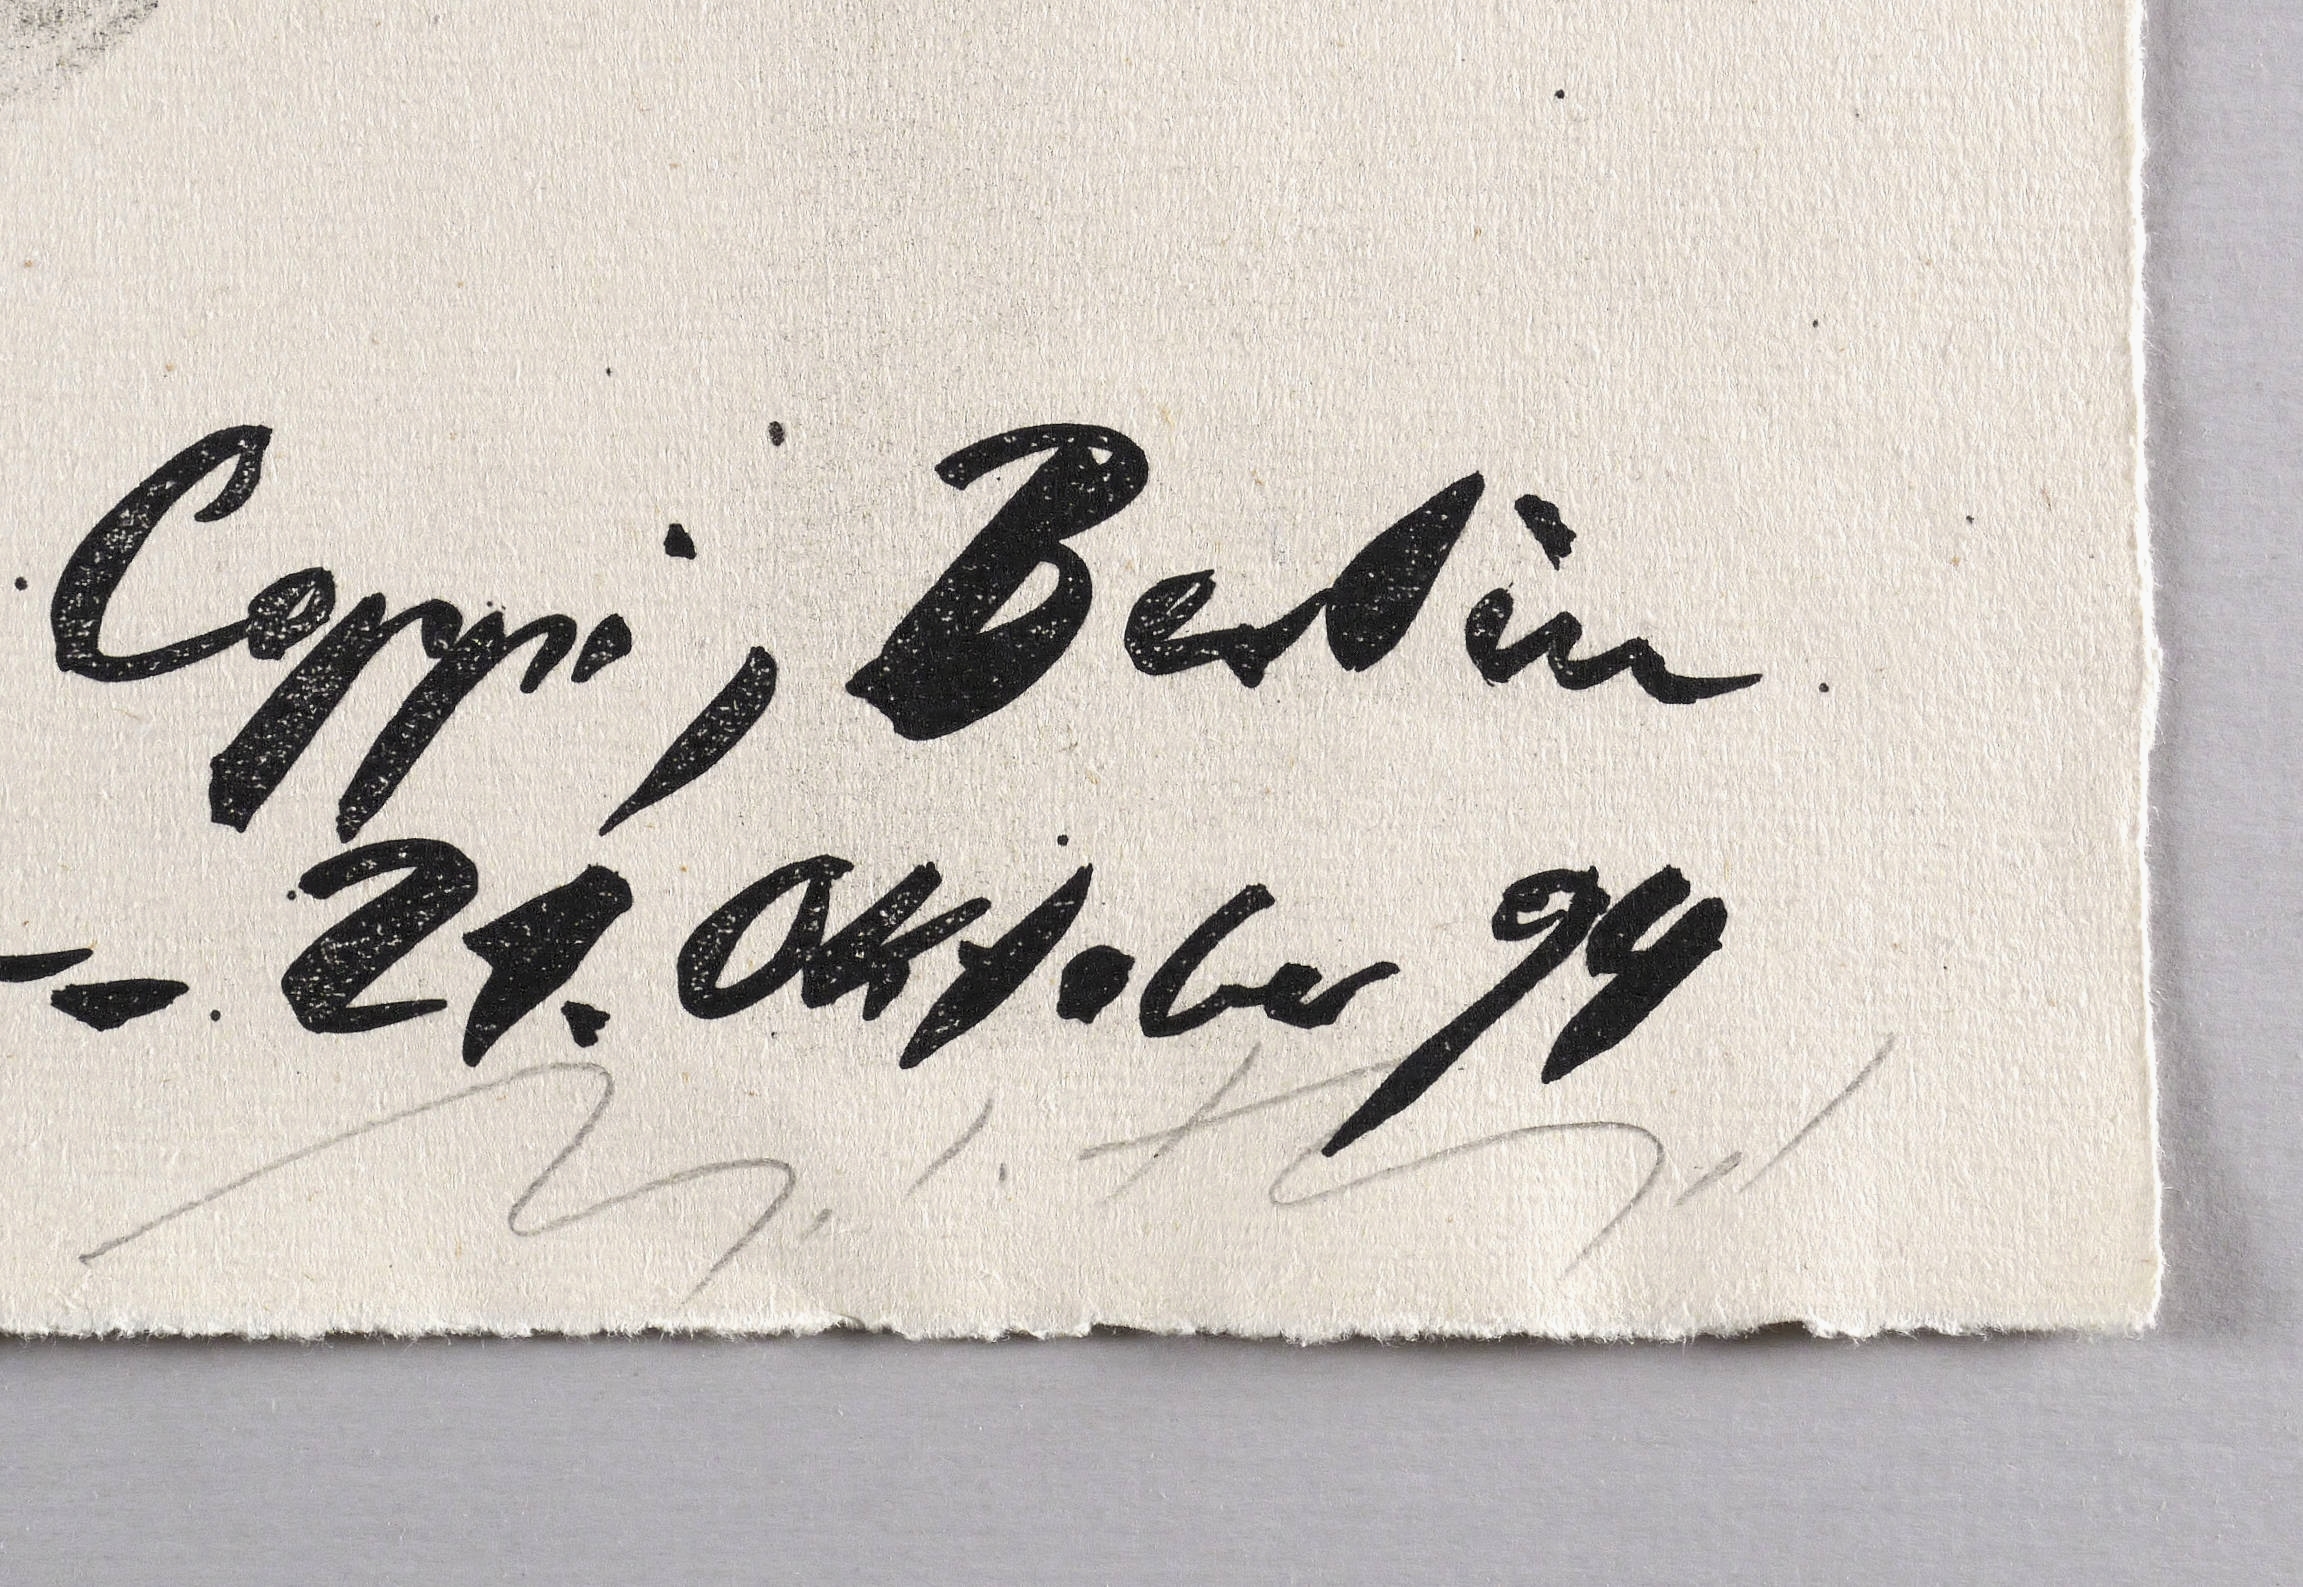 Coppi, Berlin
–– 21. Oktober 94